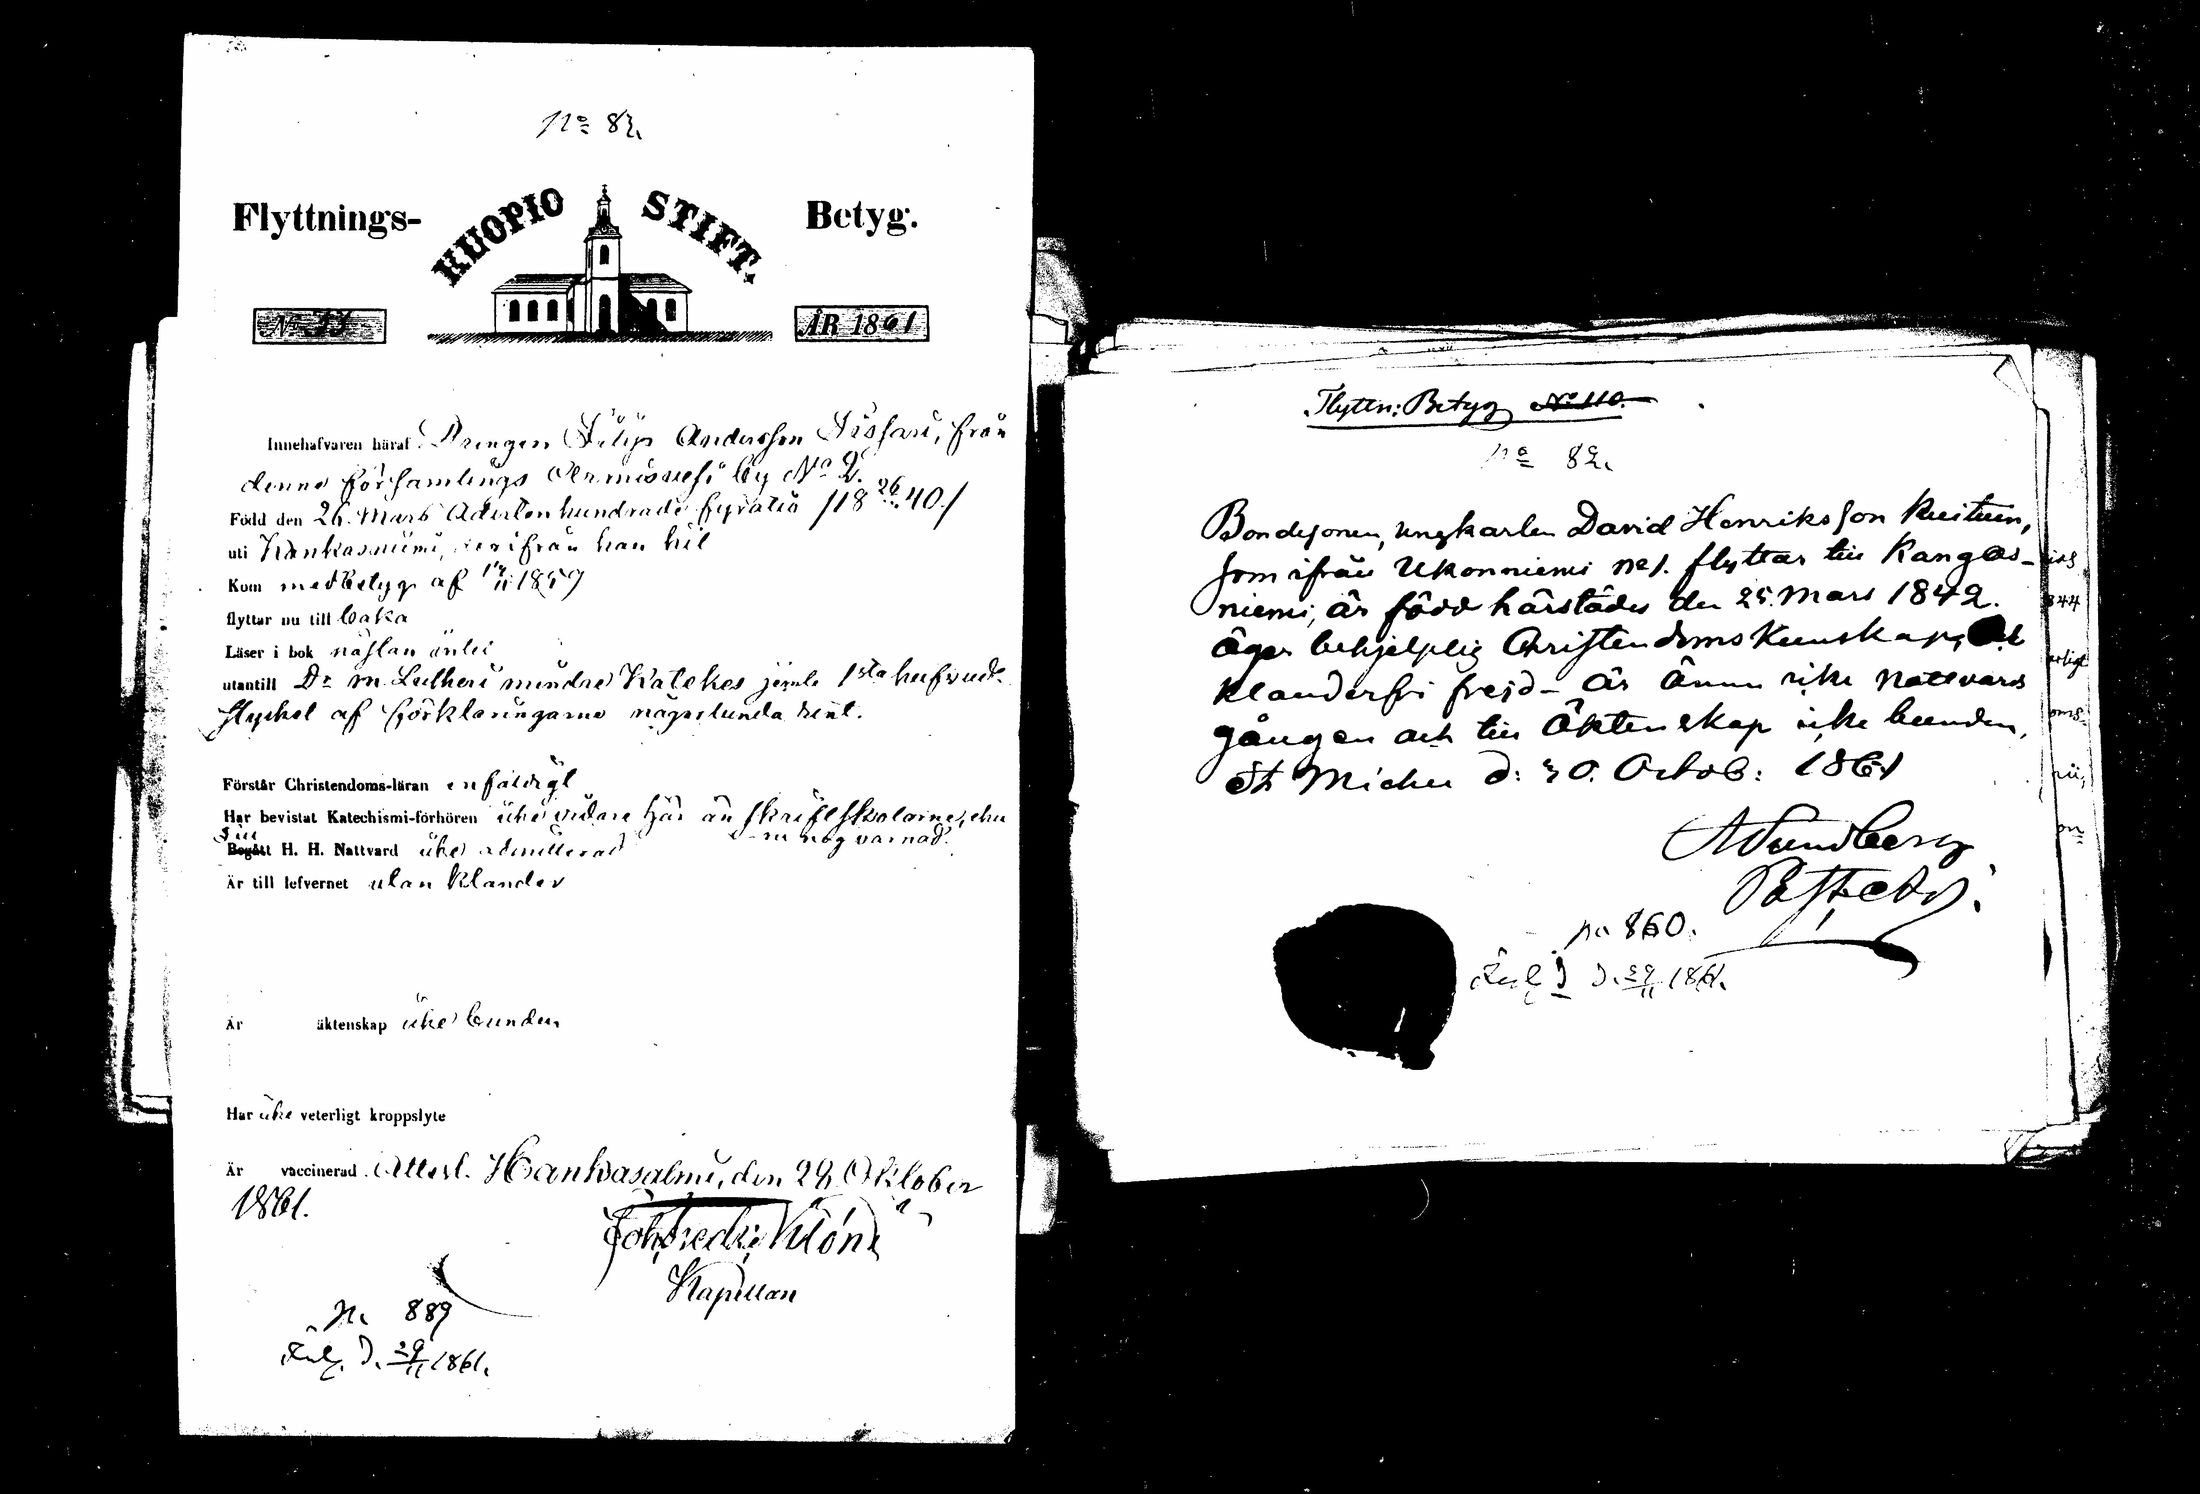 No 82.
Flyttnings- KUOPIO STIFT. Betyg.
No 33 ÅR 1861
Innehafvaren häraf Drengen Filip Andersson Sissari, från
denna församlings Armisvesi by No 2.
Född den 26. Mars Adertonhundrade fyratio /18 26/3 40./
uti Kankasniemi, derifrån han hit
Kom med betyg af 1859
flyttar nu till baka
Läser i bok nästan önlei
utantill Dr M. Lutheri mindre Katekes jemte 1sta hufvud-
stycket af förklaringarne någorlunda rent.
Förstår Christendoms-läran enfaldigt
Har bevistat Katechismi-förhören icke vidare här än skriftskolorne, ehu
ru nog varnad.
Till
Begått H. H. Nattvard icke admitterad
Är till lefvernet utan klander
Är äktenskap icke bunden
Har icke veterligt kroppslyte
Är vaccinerad. Attest. Hankasalmi, den 28 Oktober
1861.
Kapellan
No 889
D. 29/11 1861.
Flyttn: Betyg No 110.
No 82.
Bondesonen, ungkarlen David Henriksson Kuitun,
som ifrån Ukonniemi No 1. flyttar till Kangas-
niemi, är född härstädes den 25. Mars 1842.
äger behjelplig Christendoms Kunskap, och
klanderfri frejd – är ännu icke nattvards
gången och till äktenskap icke bunden.
St Michel d: 30. Octob: 1861
A Sundberg
No 860.
D. 29/11 1861.
844
erligt
oms-